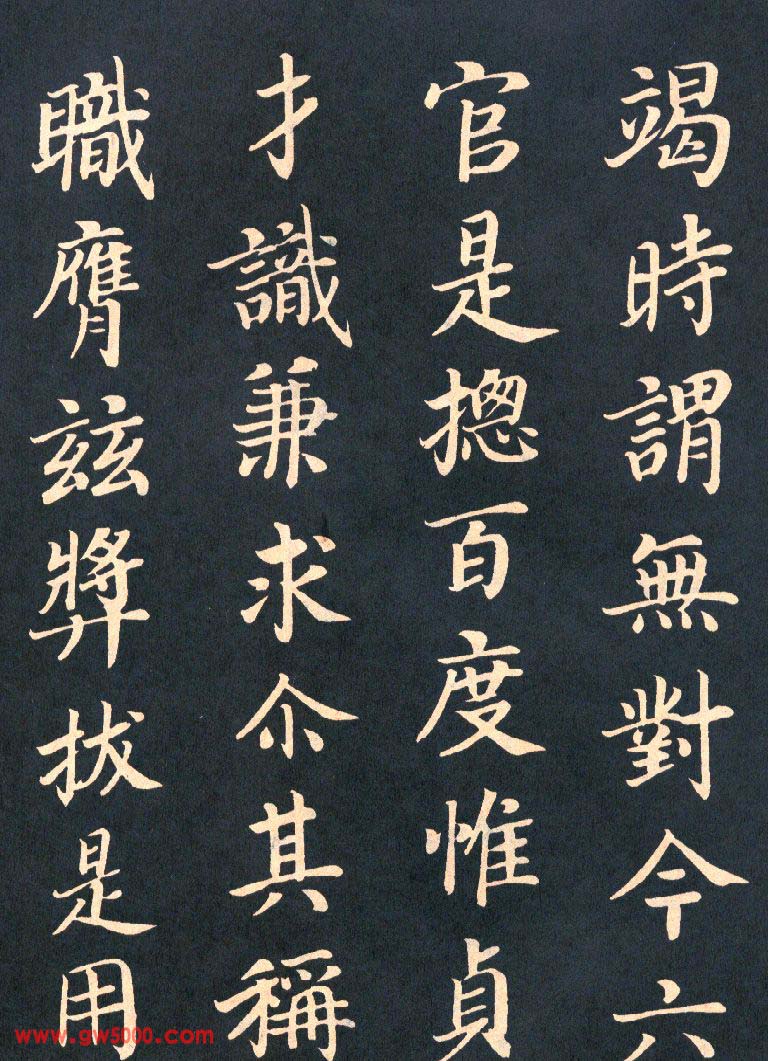 竭時謂無對今六
官是揔百度惟貞
才識兼求尒其稱
職膺茲獎拔是用
www.gw5000.com